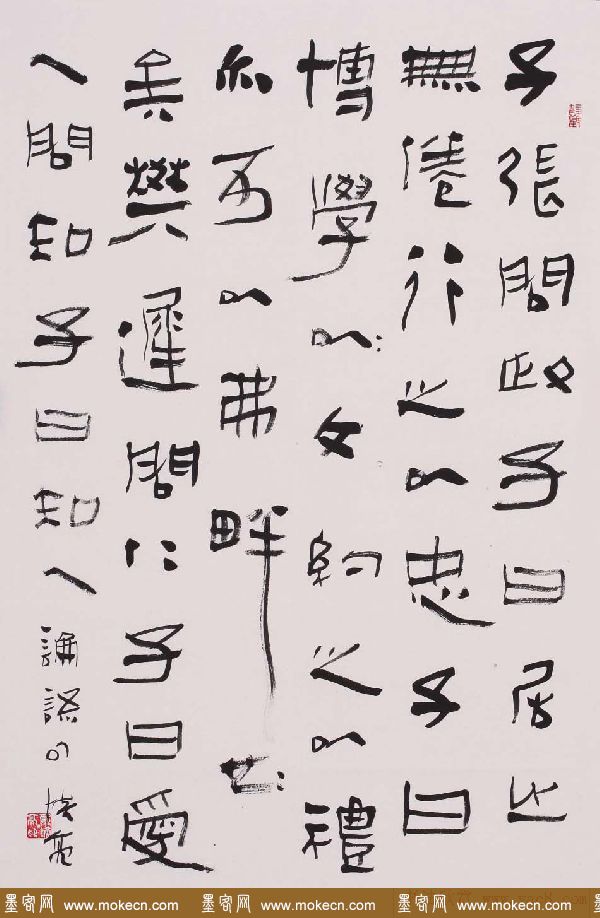 子張問政子曰居之
無倦行之以忠子曰
博學以文約之以禮
亦可以弗畔也
矣樊遲問仁子曰愛
人問知子曰知人 論語句
墨客网 www.mokecn.com 墨客网 www.mokecn.com 墨客网 www.mokecn.com